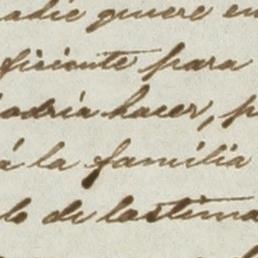 adie quiere en
ficiente para
odria hacer, p
á la familia
lo de lastima